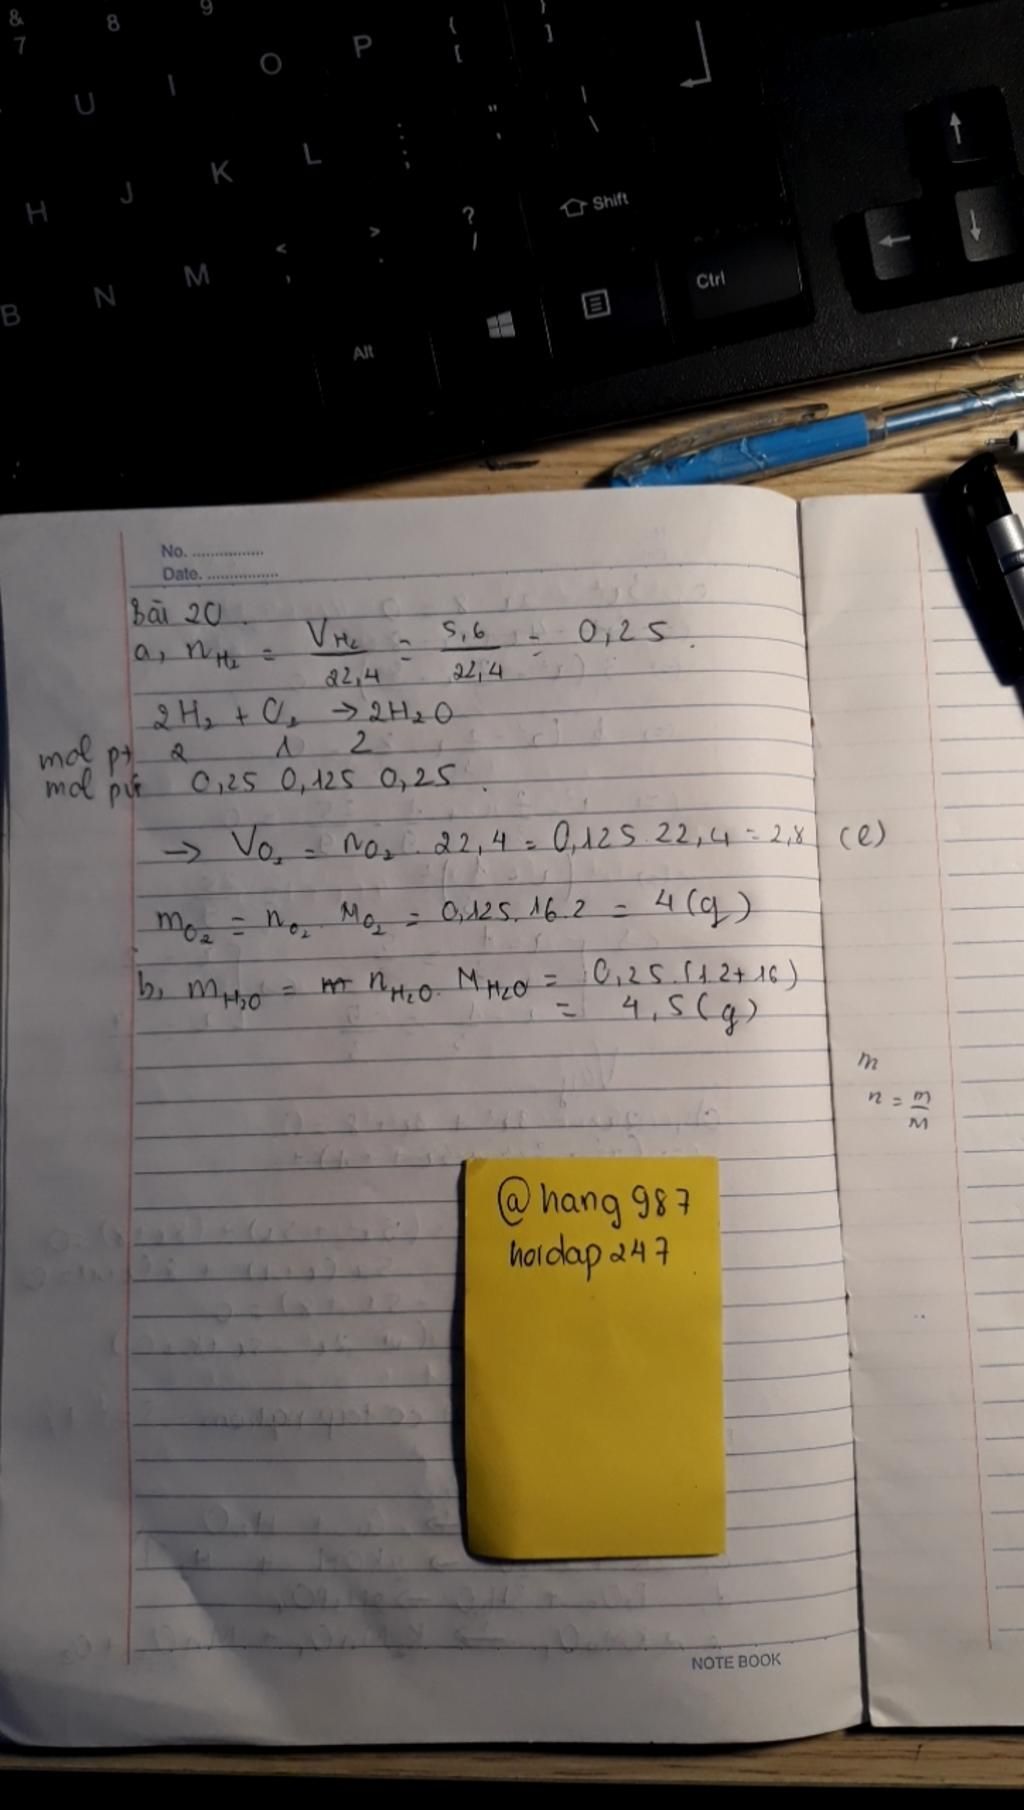 &
7
8
9
U
I
O
P
{
[
}
]
H
J
K
L
:
;
"
'
|
\
B
N
M
<
,
>
.
?
/
Shift
Alt
Ctrl
No. ................
Date. ................
Bài 20.
a, nH₂ = VH₂/22,4 = 5,6/22,4 = 0,25.
2H₂ + O₂ → 2H₂O
mol pt 2 1 2
mol pứ 0,25 0,125 0,25.
→ VO₂ = nO₂ . 22,4 = 0,125.22,4 = 2,8 (l)
mO₂ = nO₂. MO₂ = 0,125.16.2 = 4(g)
b, mH₂O = nH₂O. MH₂O = 0,25.(1.2+16)
= 4,5(g)
m
n = m/M
@hang987
hoidap247
NOTE BOOK